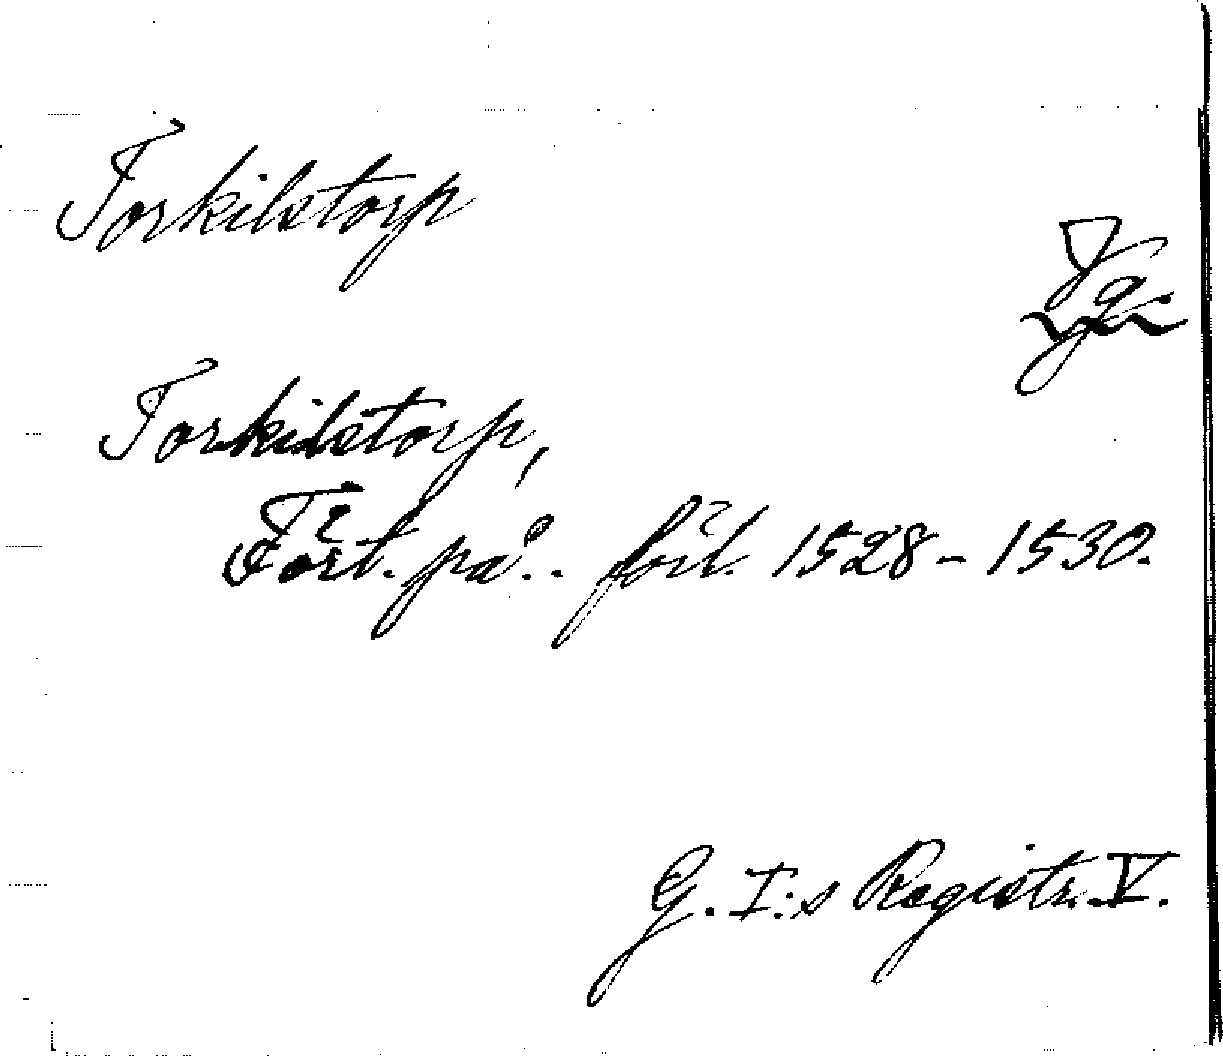 Torkilstorp
Vg.
Torkilstorp,
Fört. på.. föil. 1528-1530.
G. I:s Registr. V.